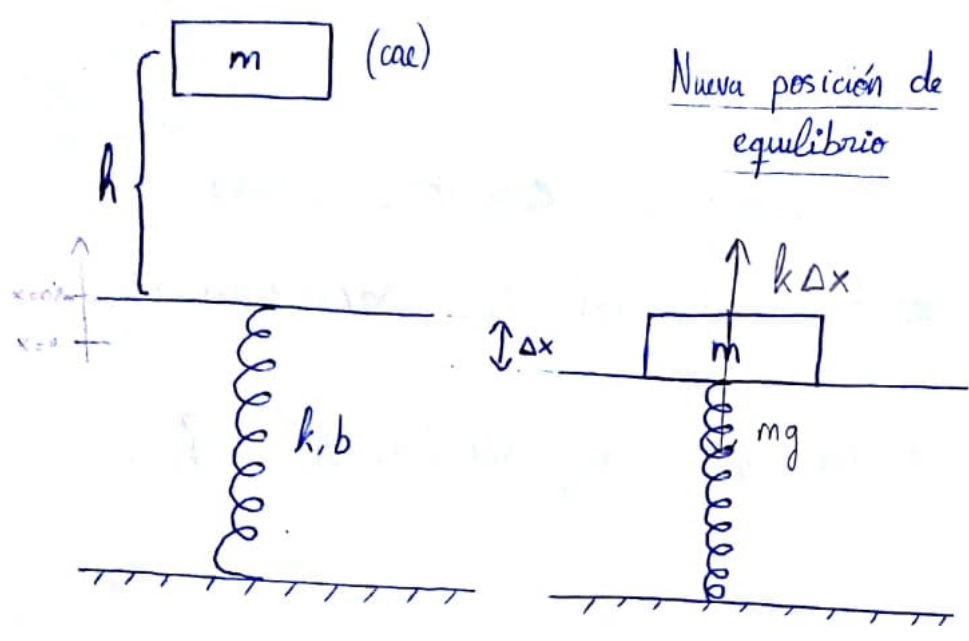 m (cae)
h
k, b
Nueva posición de
equilibrio
k Δx
Δx
m
mg